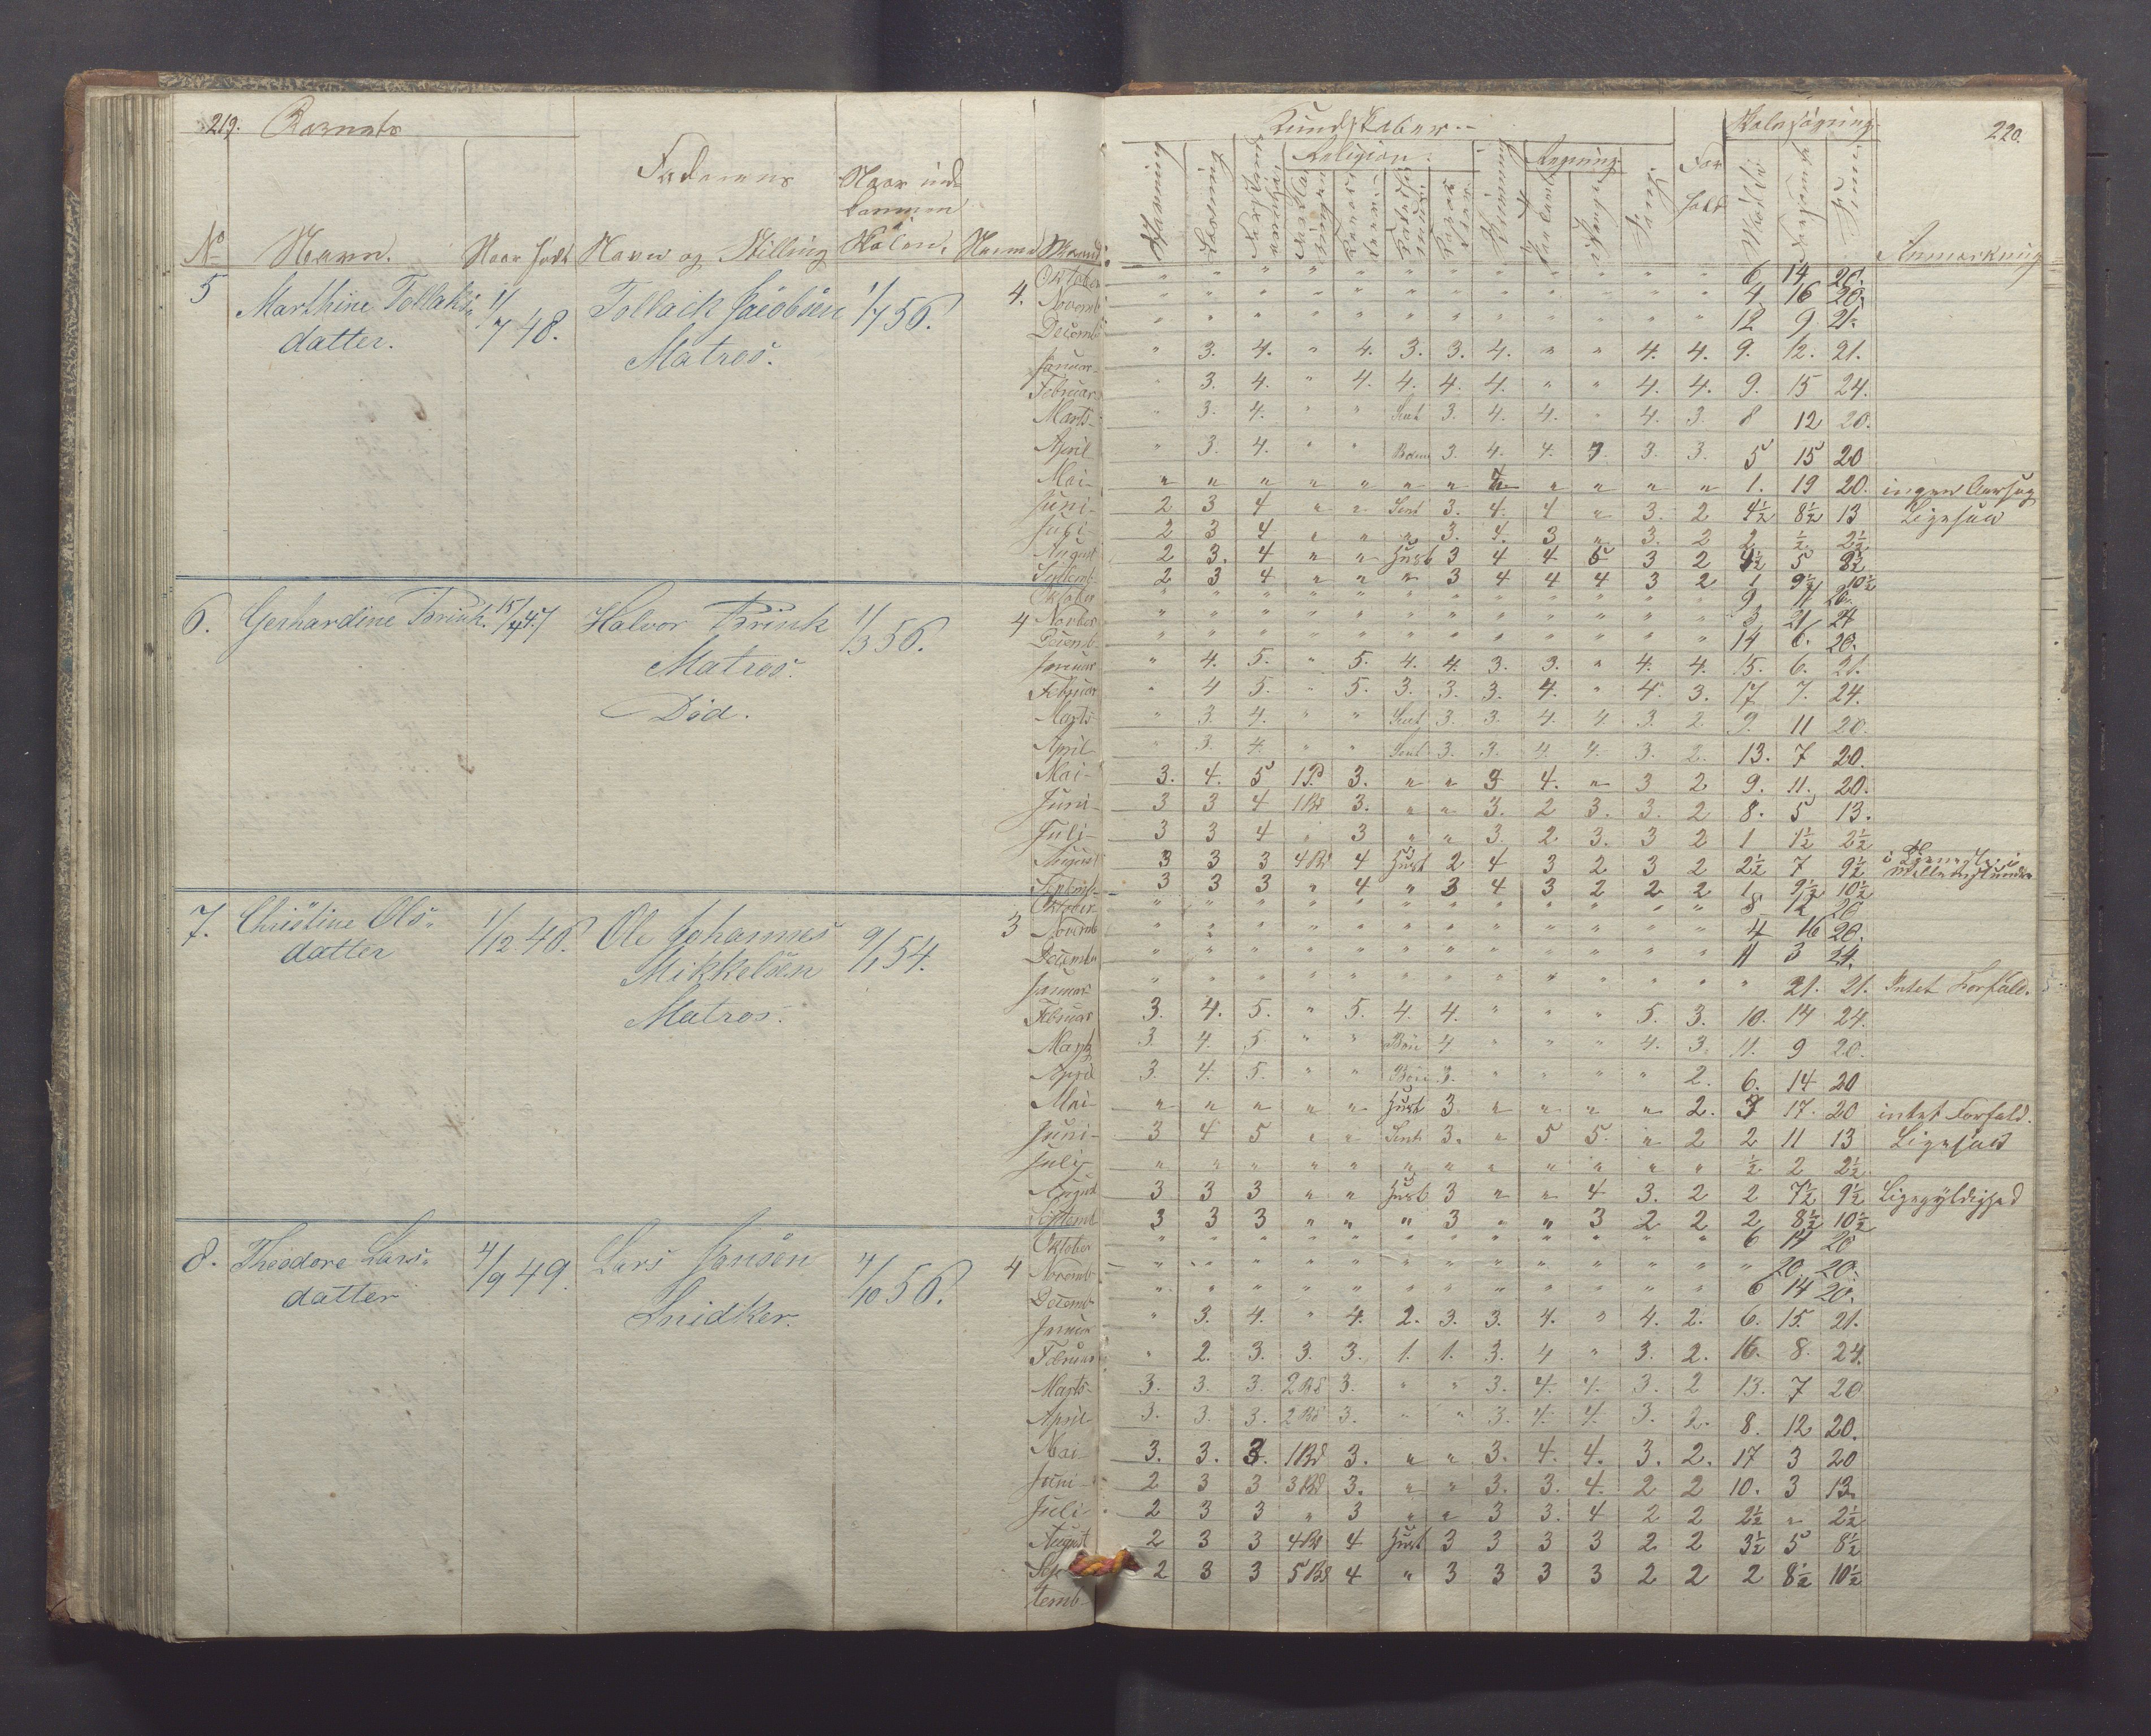 219. Barnets
Faderens
Naar ind-
kommen
No Navn. Naar født Navn og Stilling Skolen. Maaned
5 Marthine Tollaks- 1/7 48. Tollack Jacobsen 1/7 56. 4.
datter. Matros.
October
Novemb
Decemb
Januar
Februar
Marts
April
Mai
Juni
Juli
August
Septemb
6. Gerhardine Brink. 15/4 47 Halvor Brink 1/3 56. 4
Matros.
Död.
October
Novber
Decemb
Januar
Februar
Marts
April
Mai
Juni
Juli
August
Septemb
7. Christine Ols- 1/12 46. Ole Johannes 9/1 54. 3
datter Mikkelsen
Matros.
October
Novemb
Decemb
Januar
Februar
Marts
April
Mai
Juni
Juli
August
Septemb
8. Theodore Lars- 4/9 49. Lars Jansen 4/10 56. 4
datter Snidker.
October
Novemb
Decemb
Januar
Februar
Marts
April
Mai
Juni
Juli
August
Sep
temb
Kundskaber. Skolesøgning 220.
Religion. Regning For
hold
Sang
Anmærkning
" " " " " " " " " " " " 6 14 20.
" " " " " " " " " " " " 4 16 20.
" " " " " " " " " " " " 12 9 21.
" 3. 4. " 4. 3. 3. 4. " " 4. 4. 9. 12. 21.
" 3. 4. " 4. 4. 4. 4. " " 4. 4. 9. 15 24.
" 3. 4. " " 3. 4. 4. " 4. 3. 8 12 20.
" 3. 4. " " 3. 4. 4. 3. 3. 5 15 20
" " " " " " " " " " " 1. 19 20. ingen Aarsag
2 3 4 " " 3. 4. 4 " 3. 2 4½ 8½ 13 Ligesaa
2 3 4 " " " 3. 4. 3 " 3. 2 2 ½ 2½
2 3. 4 " " Hust 3 4 4 5 3 2 5 8½
2 3 4 " " " 3 4 4 4 3 2 1 9½ 10½
" " " " " " " " " " " " 9 11 20.
" " " " " " " " " " " " 3 21 24
" " " " " " " " " " " " 14 6. 20.
" 4. 5. " 5. 4. 4. 3. 3. " 4. 4. 15. 6. 21.
" 4 5. " 5. 3. 3. 3. 4. " 4. 3. 17 7. 24.
" 3. 4. " " 3. 3. 4. 4. 3. 2. 9. 11 20.
" 3. 4. " " 3. 3. 4. 4. 3. 2. 13. 7 20.
3. 4. 5 3. " " 3 4. " 3 2 9. 11. 20.
3 3 4 3. " " 3. 2 3. 3. 2 8. 5 13.
3 3 4 " 3 " " 3. 2 3. 3 2 1 1½ 2½
3 3 3 4 Hust 2 4 3 2 3 2 2½ 7 9½
3 3 3 " 4 " 3 4 3 2 2 2 1 9½ 10½
" " " " " " " " " " " " 8 12 20
" " " " " " " " " " " " 4 16 20.
" " " " " " " " " " " " 3 24.
" " " " " " " " " " " " " 21. 21. Intet Forfald.
3. 4. 5. " 5. 4. 4. " " " 5. 3. 10. 14 24.
3. 4. 5. " " 4 " " " 4. 3. 11. 9 20.
3. 4. 5. " " 3. " " " " 2. 6. 14 20
" " " " " Hust 3 " " " " 2. 3 17. 20 intet Forfald.
3 4 5 " " 3. " 5 5. " 2 2 11 13 Ligesaa
" " " " " " " " " " " " ½ 2 2½
3 3 3 " " Hust 3 " " 4 3. 2 2 7½ 9½ Ligegyldighed
3 3 3 " " " 3 " " 3 2 2 2 8½ 10½
" " " " " " " " " " " " 6 14 20
" " " " " " " " " " " " " 20 20.
" " " " " " " " " " " " 6 14 20.
" 3. 4. " 4. 2. 3. 3. 4. " 4. 2. 6. 15. 21.
" 2. 3. 3. 3. 1. 1. 3. 4 " 3. 2. 16. 8. 24.
3. 3. 3. 3. " " 3. 4. 4. 3. 2 13. 7 20
3. 3. 3. 3. " " 3. 4. 4. 3. 2. 8. 12 20.
3. 3. 3. 3. " " 3. 4. 4. 3. 2. 17 3 20
2 3 3 3. " " 3. 3. 4. 2 2 10. 3 13.
2 3 3 " 3 " " 3 3. 4 2 2 2½ " 2½
2 3 3 4 Hust 3 3 3 3 2 2 3½ 5 8½
2 3 3 4 " 3 3 3 3 2 2 2 8½ 10½